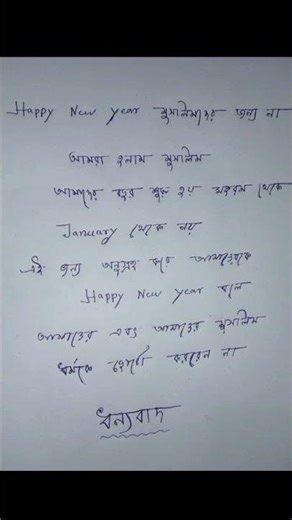 Happy New Year মুসলিমদের জন্য না
আমরা হলাম মুসলিম
আমাদের বছর শুরু হয় মহরম থেকে
January থেকে নয়
এই জন্য অনুগ্রহ করে আমাদেরকে
Happy New Year বলে
আমাদের এবং আমাদের মুসলিম
ধর্মকে ছোটো করবেন না
ধন্যবাদ